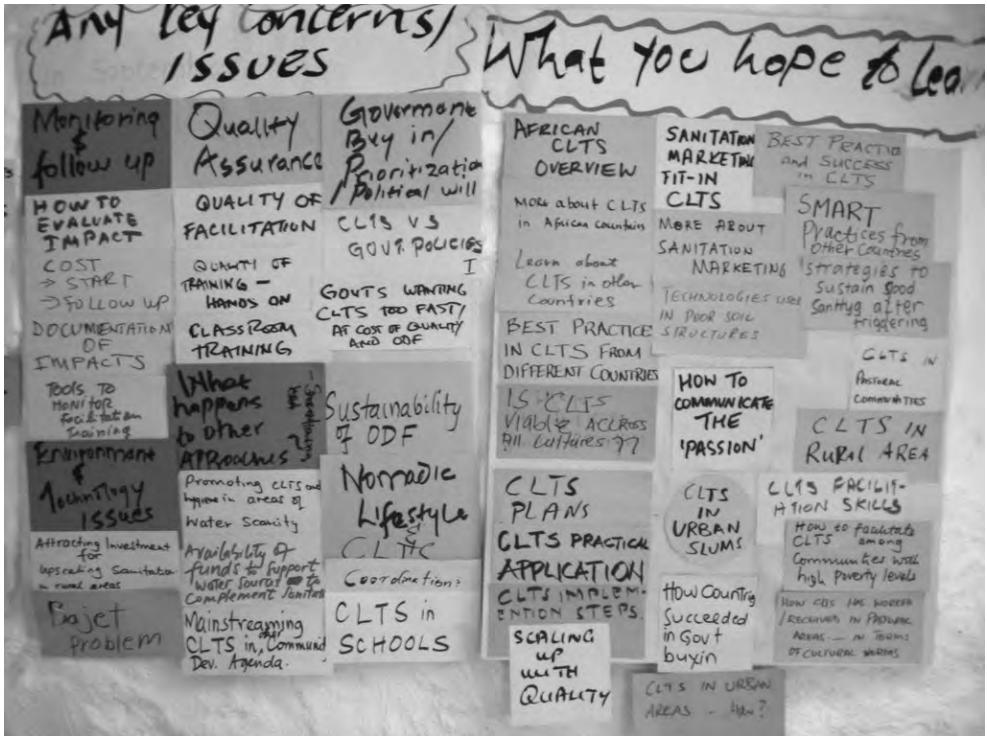 Any key concerns/
ISSUES
Monitoring
&
follow up
HOW TO
EVALUATE
IMPACT
COST
→ START
→ FOLLOW UP
DOCUMENTATION
OF
IMPACTS
TOOLS TO
MONITOR
Facilitation
Training
Environment
&
Technology
Issues
Attracting Investment
for
Upscaling Sanitation
in rural areas
Bajet
Problem
Quality
Assurance
QUALITY OF
FACILITATION
QUALITY OF
TRAINING -
HANDS ON
CLASSROOM
TRAINING
What
happens
to other
APPROACHES
Promoting CLTS and
hygiene in areas of
Water Scarcity
Availability of
funds to support
water sources to
complement Sanitation
Mainstreaming
CLTS in the Community
Dev. Agenda.
Goverment
Buy in/
Prioritization
/Political will
CLTS VS
GOVT. POLICIES
I
GOVTS WANTING
CLTS TOO FAST/
AT COST OF QUALITY
AND ODF
Sustainability
of ODF
Nomadic
Lifestyle
&
CLTS
Coordination?
CLTS in
SCHOOLS
What you hope to lear
AFRICAN
CLTS
OVERVIEW
More about CLTS
in African countries
Learn about
CLTS in other
Countries
BEST PRACTICE
IN CLTS FROM
DIFFERENT COUNTRIES
IS CLTS
Viable ACCROSS
All Cultures ??
CLTS
PLANS
CLTS PRACTICAL
APPLICATION
CLTS IMPLEM-
ENTION STEPS.
SCALING
UP
WITH
QUALITY
SANITATION
MARKETING
FIT-IN
CLTS
MORE ABOUT
SANITATION
MARKETING
TECHNOLOGIES USED
IN POOR SOIL
STRUCTURES
HOW TO
COMMUNICATE
THE
'PASSION'
CLTS
IN
URBAN
SLUMS
How Country
Succeeded
in Govt
buyin
CLTS IN URBAN
AREAS - How?
BEST PRACTIC
and SUCCESS
in CLTS
SMART
Practices from
Other Countries
Strategies to
Sustain good
after
triggering
CLTS IN
PASTORAL
COMMUNITIES
CLTS IN
RURAL AREA
CLTS FACILIT-
ATION SKILLS
How to facilitate
CLTS among
Communities with
high poverty levels
HOW CLTS HAS WORKED
/RECEIVED IN PASTORAL
AREAS - IN TERMS
OF CULTURAL NORMS